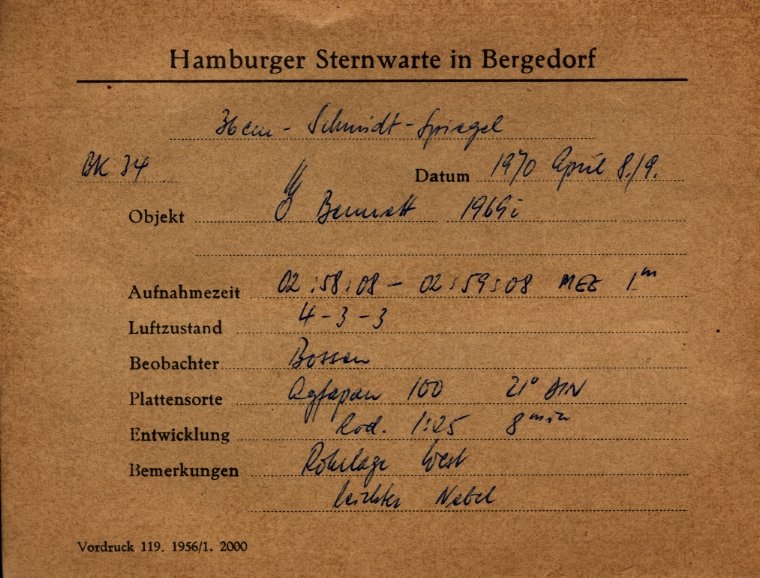 Hamburger Sternwarte in Bergedorf
Schmidt-Spiegel
BK 34 Datum 1970 April 8./9.
Objekt ☄ Bennett 1969i
Aufnahmezeit 02:58:08 - 02:59:08 MEZ 1ᵐ
Luftzustand 4-3-3
Beobachter Bossen
Plattensorte Agfapan 100 21° DIN
Entwicklung Rod. 1:25 8 min
Bemerkungen Rohrlage West
leichter Nebel
Vordruck 119. 1956/1. 2000